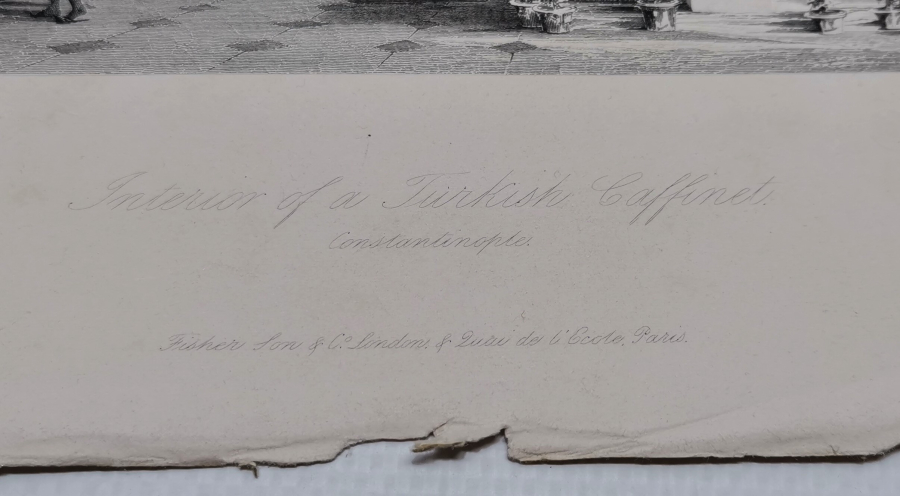 Interior of a Turkish Caffinet.
Constantinople.
Fisher Son & Co. London, & Quai de l'Ecole, Paris.